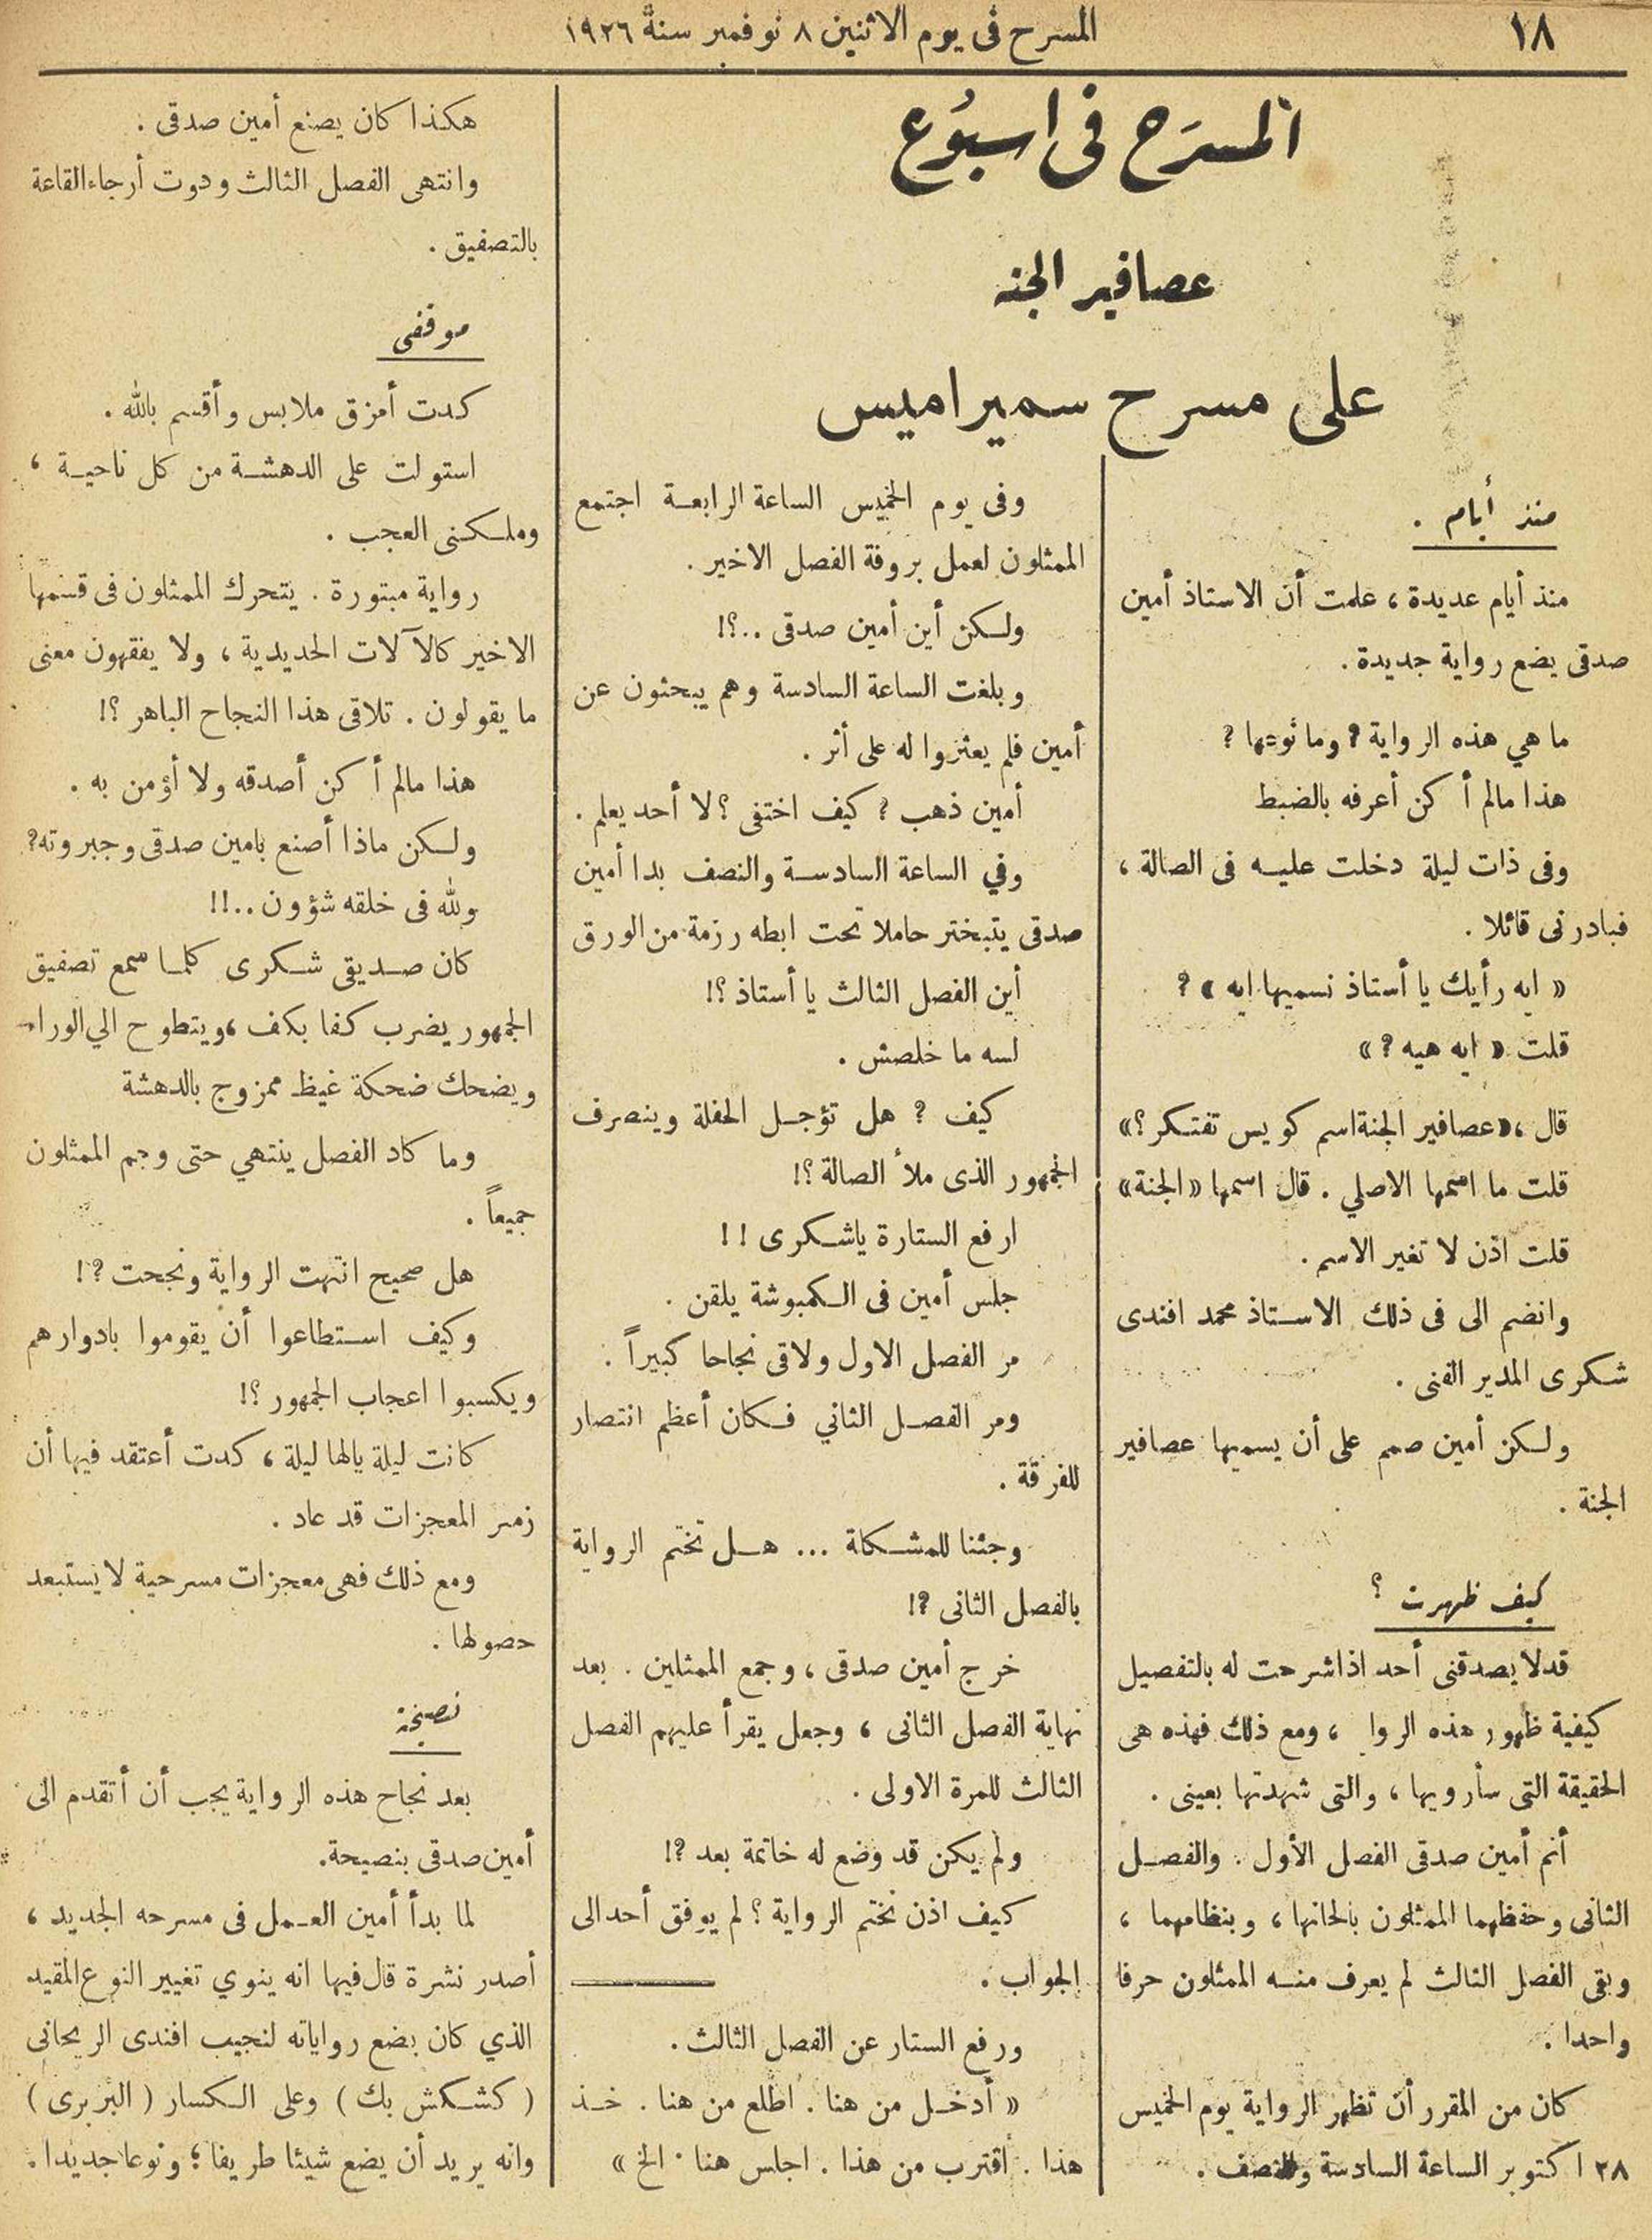 ١٨
المسرح فى يوم الاثنين ٨ نوفمبر سنة ١٩٢٦
المسرح فى اسبوع
عصافير الجنه
على مسرح سميراميس
منذ أيام .
منذ أيام عديدة ، علمت أن الاستاذ أمين
صدقى يضع رواية جديدة .
ما هي هذه الرواية ? وما نوعها ?
هذا مالم أكن أعرفه بالضبط
وفى ذات ليلة دخلت عليه فى الصالة ،
فبادرنى قائلا .
« ايه رأيك يا أستاذ نسميها ايه » ?
قلت « ايه هيه ? »
قال ، «عصافير الجنة اسم كويس تفتكر ؟»
قلت ما اسمها الاصلي . قال اسمها «الجنة»
قلت اذن لا تغير الاسم .
وانضم الى فى ذلك الاستاذ محمد افندى
شكرى المدير الفنى .
ولكن أمين صمم على أن يسميها عصافير
الجنة .
كيف ظهرت ؟
قد لا يصدقنى أحد اذا شرحت له بالتفصيل
كيفية ظهور هذه الروا ، ومع ذلك فهذه هى
الحقيقة التى سأرويها ، والتى شهدتها بعينى .
أتم أمين صدقى الفصل الأول . والفصل
الثانى وحفظهما الممثلون بالحانها ، وبنظامهما ،
وبقى الفصل الثالث لم يعرف منه الممثلون حرفا
واحدا .
كان من المقرر أن تظهر الرواية يوم الخميس
٢٨ اكتوبر الساعة السادسة والنصف .
وفى يوم الخميس الساعة الرابعة اجتمع
الممثلون لعمل بروفة الفصل الاخير .
ولكن أين أمين صدقى ..؟!
وبلغت الساعة السادسة وهم يبحثون عن
أمين فلم يعثروا له على أثر .
أمين ذهب ? كيف اختفى ؟ لا أحد يعلم .
وفي الساعة السادسة والنصف بدا أمين
صدقى يتبختر حاملا تحت ابطه رزمة من الورق
أين الفصل الثالث يا أستاذ ؟!
لسه ما خلصش .
كيف ? هل تؤجل الحفلة وينصرف
الجمهور الذى ملأ الصالة ؟!
ارفع الستارة ياشكرى !!
جلس أمين فى الكمبوشة يلقن .
مر الفصل الاول ولاقى نجاحا كبيراً .
ومر الفصل الثاني فكان أعظم انتصار
للفرقة .
وجئنا للمشكلة ... هل تختم الرواية
بالفصل الثانى ?!
خرج أمين صدقى ، وجمع الممثلين . بعد
نهاية الفصل الثانى ، وجعل يقرأ عليهم الفصل
الثالث للمرة الاولى .
ولم يكن قد وضع له خاتمة بعد ?!
كيف اذن نختم الرواية ؟ لم يوفق أحد الى
الجواب .
ورفع الستار عن الفصل الثالث .
« أدخل من هنا . اطلع من هنا . خذ
هذا . اقترب من هذا . اجلس هنا . الخ »
هكذا كان يصنع أمين صدقى .
وانتهى الفصل الثالث ودوت أرجاء القاعة
بالتصفيق .
موقفى
كدت أمزق ملابس وأقسم بالله .
استولت على الدهشة من كل ناحية ،
وملكنى العجب .
رواية مبتورة . يتحرك الممثلون فى قسمها
الاخير كالآلات الحديدية ، ولا يفقهون معنى
ما يقولون . تلاقى هذا النجاح الباهر ؟!
هذا مالم أكن أصدقه ولا أؤمن به .
ولكن ماذا أصنع بامين صدقى وجبروته?
ولله فى خلقه شؤون ..!!
كان صديقى شكرى كلما سمع تصفيق
الجمهور يضرب كفا بكف ، ويتطوح الي الوراء
ويضحك ضحكة غيظ ممزوج بالدهشة
وما كاد الفصل ينتهي حتى وجم الممثلون
جميعاً .
هل صحيح انتهت الرواية ونجحت ?!
وكيف استطاعوا أن يقوموا بادوارهم
ويكسبوا اعجاب الجمهور ؟!
كانت ليلة يالها ليلة ، كدت أعتقد فيها أن
زمن المعجزات قد عاد .
ومع ذلك فهى معجزات مسرحية لا يستبعد
حصولها .
نصيحة
بعد نجاح هذه الرواية يجب أن أتقدم الى
أمين صدقى بنصيحة.
لما بدأ أمين العمل فى مسرحه الجديد ،
أصدر نشرة قال فيها انه ينوي تغيير النوع المقيد
الذي كان بضع رواياته لنجيب افندى الريحانى
( كشكش بك ) وعلى الكسار ( البربرى )
وانه يريد أن يضع شيئا طريفا ؛ ونوعا جديدا .